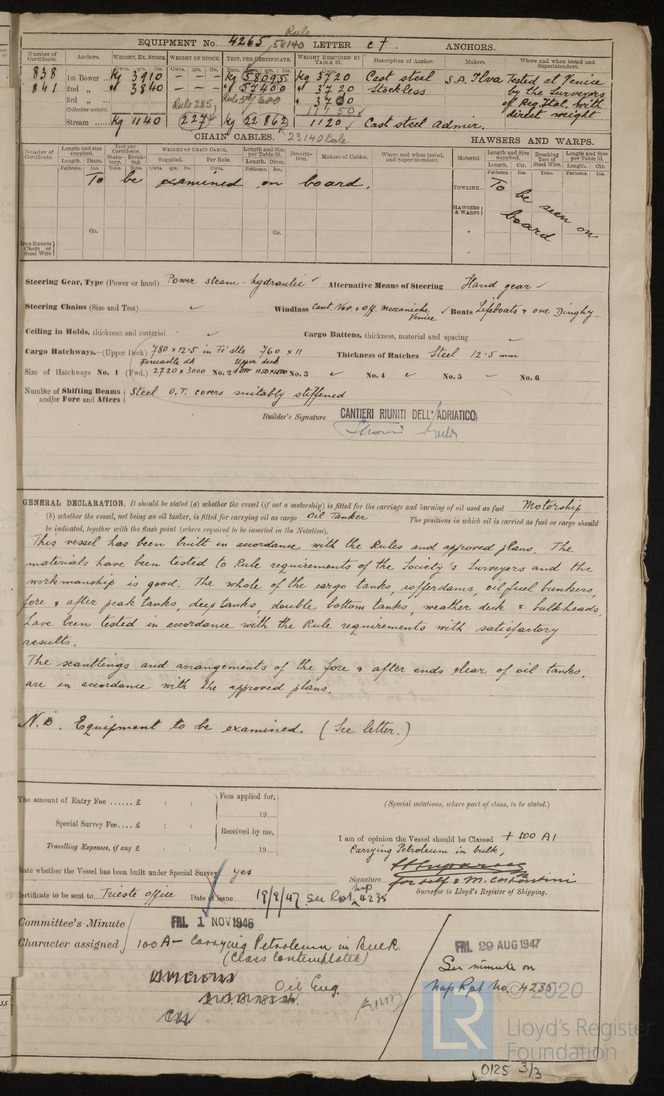 Rule
EQUIPMENT No. 4265, 58140 LETTER c† ANCHORS.
Number of Certificate. Anchors. WEIGHT, EX. STOCK. WEIGHT OF STOCK. TEST, PER CERTIFICATE. WEIGHT REQUIRED BY TABLE 53. Description of Anchor. Makers. Where and when tested and Superintendent.
838 1st Bower Kg 3910 - - - Kg 58095 Kg 3720 Cast steel S.A. Ilva Tested at Venice
841 2nd " " 3840 - - - " 57400 " 3720 Stockless by the Surveyors
3rd " " 3720 of Reg. Ital. with
Collective weight. Rule 285 direct weight
Stream Kg 1140 227 Kg 22862 1120 Cast steel Admir.
CHAIN CABLES. 23140 Rule HAWSERS AND WARPS.
Number of Certificate. Length and size supplied. Test per Certificate. WEIGHT OF CHAIN CABLE. Length and Size per Table 53. Description. Makers of Cables. Where and when tested, and Superintendent. Material Length and Size supplied. Breaking Test of Steel Wire. Length and Size per Table 53.
Length. Diam. Statutory. Breaking. Supplied. Per Rule. Length. Diam. Length. Cir. Length. Cir.
To be examined on board.
TOWLINE
HAWSERS & WARPS
To be seen on board
Iron Stream Chain or Steel Wire
Steering Gear, Type (Power or hand) Power steam-hydraulic Alternative Means of Steering Hand gear
Steering Chains (Size and Test) Windlass Cant. Nav. & Off. Meccaniche Venice Boats Lifeboats & one Dinghy.
Ceiling in Holds, thickness and material Cargo Battens, thickness, material and spacing
Cargo Hatchways.—(Upper Deck) 780 x 12.5 in 760 x 11 Thickness of Hatches Steel 12.5 mm
Forecastle dk Upper deck
Size of Hatchways No. 1 (Fwd.) 2720 x 3000 No. 2 No. 3 No. 4 No. 5 No. 6
Number of Shifting Beams and/or Fore and Afters Steel O.T. covers suitably stiffened
Builder's Signature CANTIERI RIUNITI DELL'ADRIATICO
GENERAL DECLARATION. It should be stated (a) whether the vessel (if not a motorship) is fitted for the carriage and burning of oil used as fuel Motorship
(b) whether the vessel, not being an oil tanker, is fitted for carrying oil as cargo Oil Tanker The positions in which oil is carried as fuel or cargo should
be indicated, together with the flash point (where required to be inserted in the Notation).
This vessel has been built in accordance with the Rules and approved plans. The
materials have been tested to Rule requirements of the Society's Surveyors and the
workmanship is good. The whole of the cargo tanks, cofferdams, oil fuel bunkers,
fore & after peak tanks, deep tanks, double bottom tanks, weather deck & bulkheads
have been tested in accordance with the Rule requirements with satisfactory
results.
The scantlings and arrangements of the fore & after ends clear of oil tanks,
are in accordance with the approved plans.
N.B. Equipment to be examined. (See letter.)
The amount of Entry Fee ...... £ : : Fees applied for,
19 (Special notations, where part of class, to be stated.)
Special Survey Fee .... £ : :
Received by me,
Travelling Expenses, if any) £ : : 19
I am of opinion the Vessel should be Classed + 100 A1
Carrying Petroleum in bulk,
State whether the Vessel has been built under Special Survey yes
Signature
for self & M. Costantini
Surveyor to Lloyd's Register of Shipping.
Certificate to be sent to Trieste office Date of issue 18/9/47 see Rpt Nap 4235
Committee's Minute FRI. 1 NOV 1946
Character assigned 100A- Carrying Petroleum in Bulk
(Class Contemplated)
Oil Eng.
FRI. 29 AUG 1947
See minute on
Nap Rpt No. 4235
© 2020
LR
Lloyd's Register
Foundation
0125 3/3